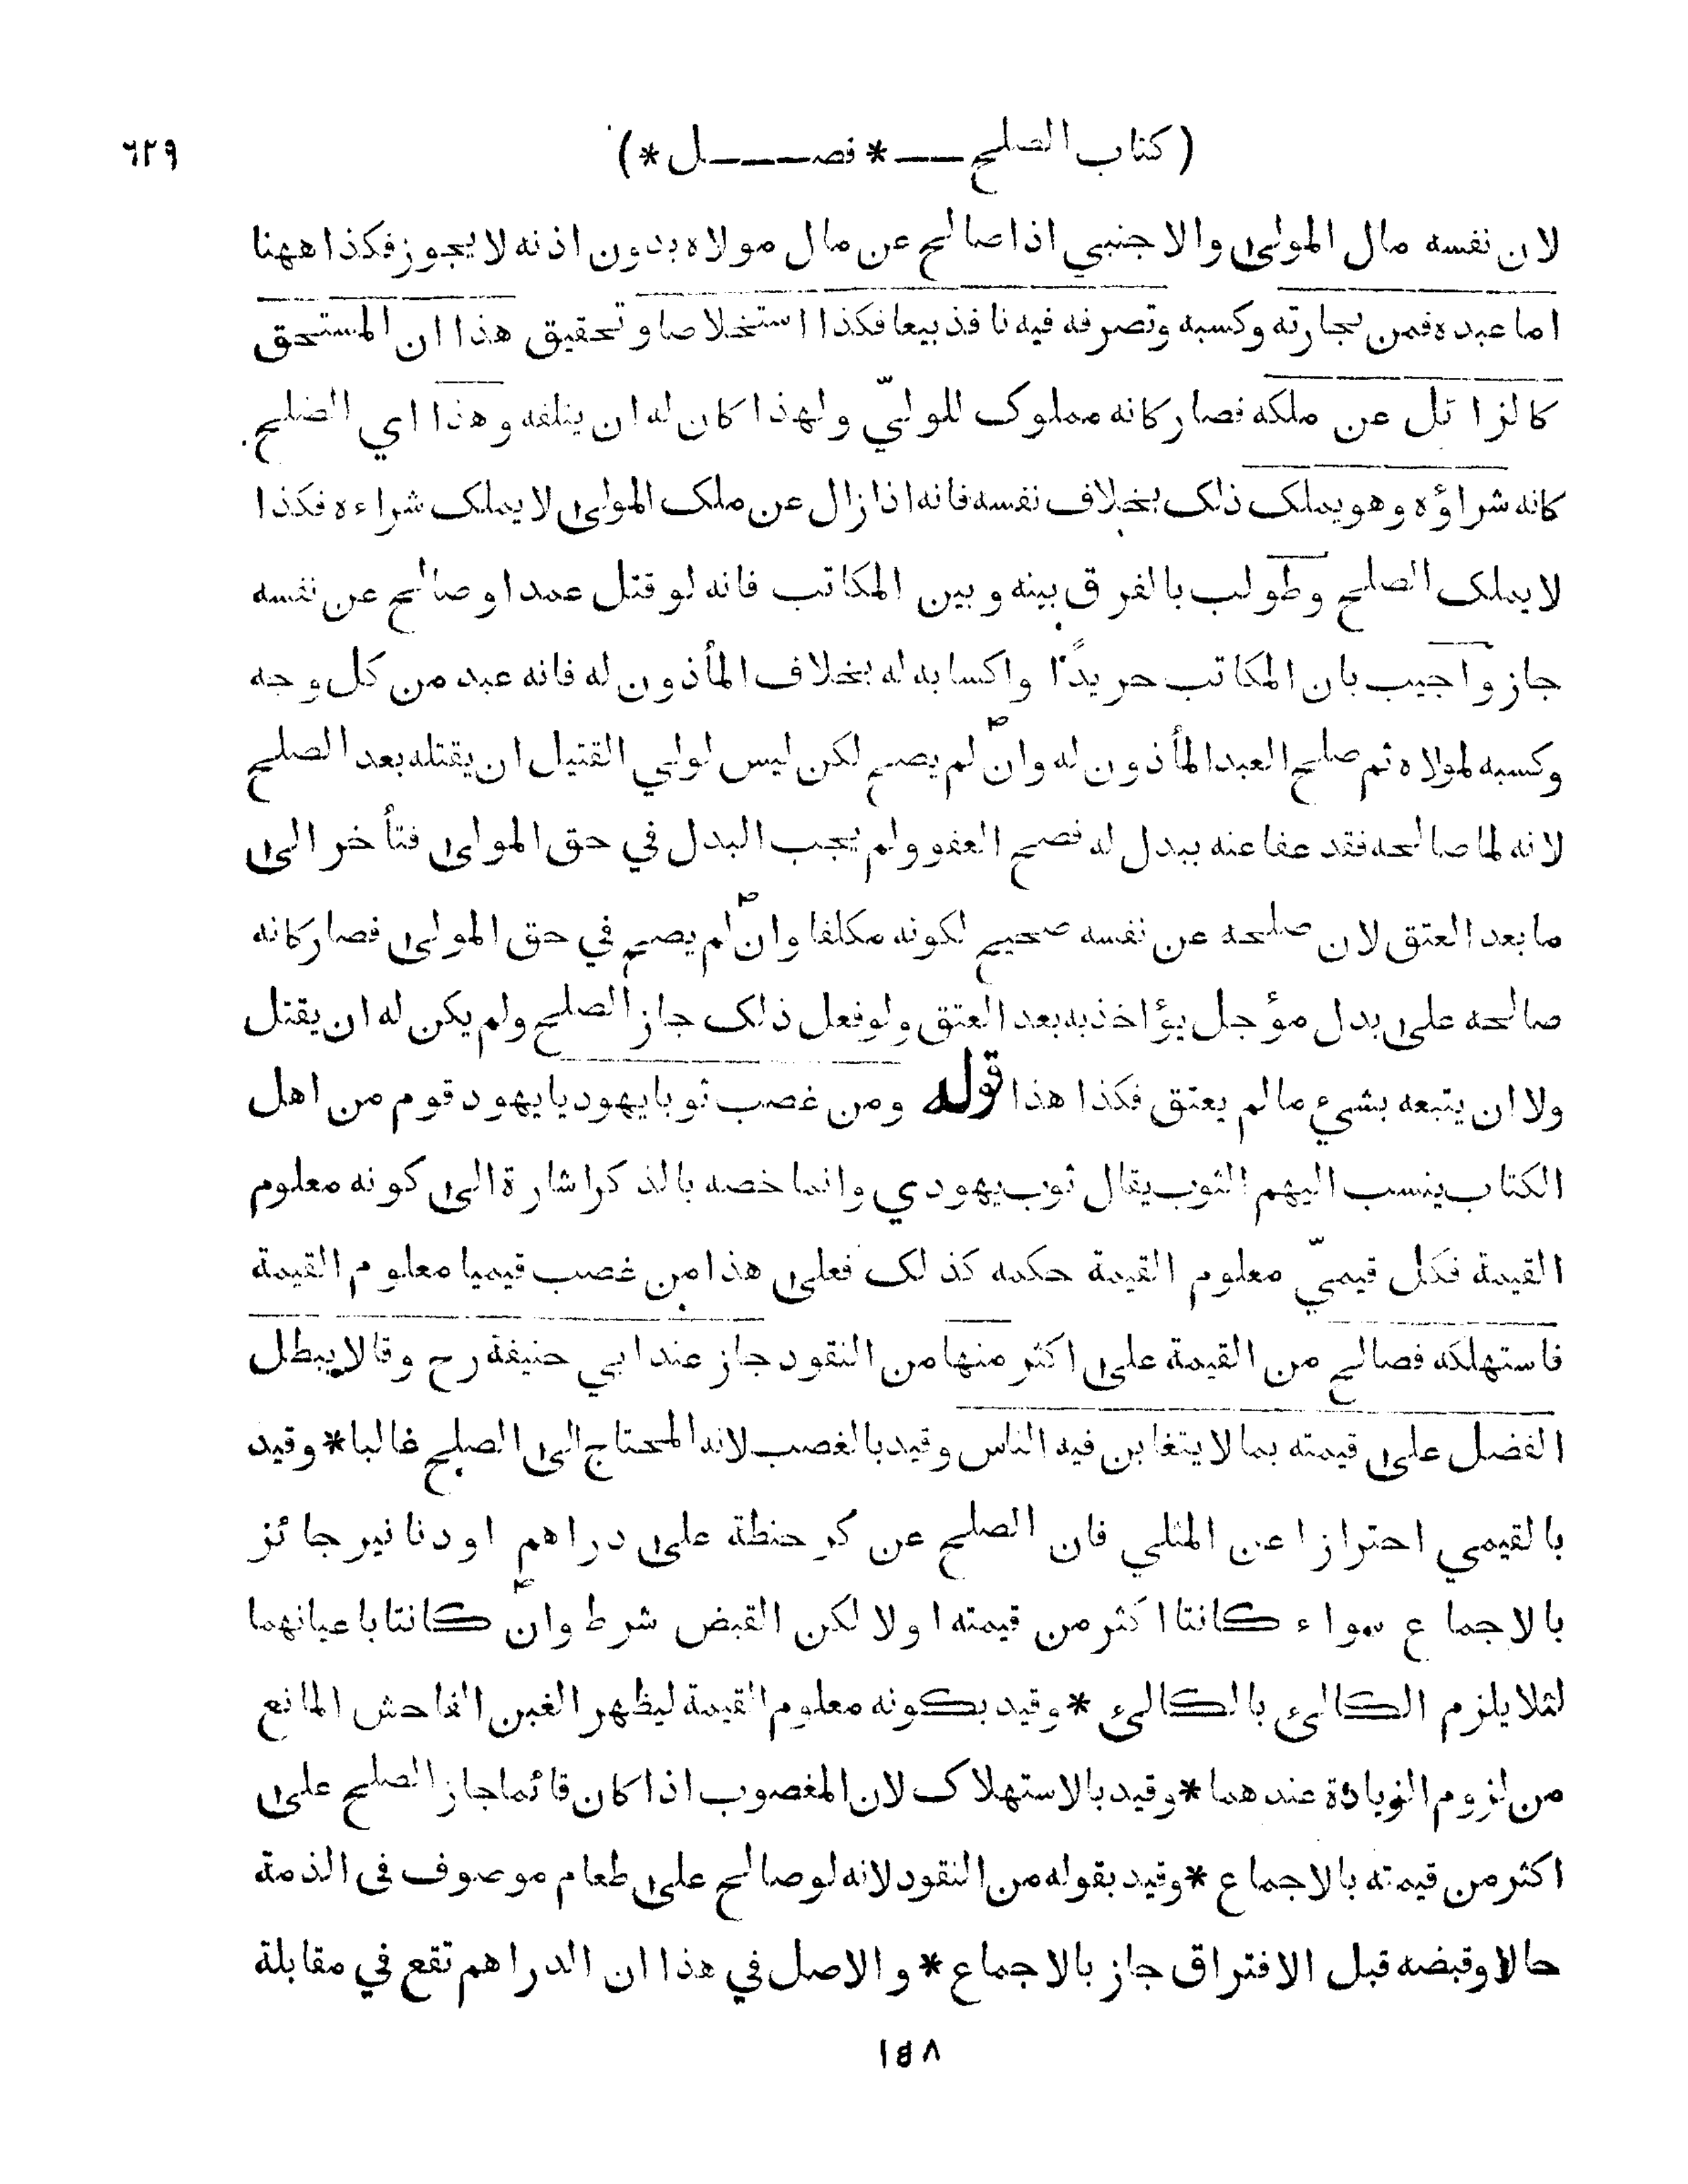 (كتاب الصلح ــــ * فصـــــل *) ٦٢٩
لان نفسه مال المولى والاجنبي اذا صالح عن مال مولاه بدون اذنه لا يجوز فكذا ههنا
اما عبده فمن تجارته وكسبه وتصرفه فيه نافذ بيعا فكذا استخلاصا وتحقيق هذا ان المستحق
كالزائل عن ملكه فصار كانه مملوك للوليّ ولهذا كان له ان يتلفه وهذا اي الصلح
كانه شراؤه وهو يملك ذلك بخلاف نفسه فانه اذا زال عن ملك المولى لا يملك شراءه فكذا
لا يملك الصلح وطولب بالفرق بينه وبين المكاتب فانه لو قتل عمدا وصالح عن نفسه
جاز واجيب بان المكاتب حر يدًا واكسابه له بخلاف المأذون له فانه عبد من كل وجه
وكسبه لمولاه ثم صلح العبد المأذون له وان لم يصح لكن ليس لولي القتيل ان يقتله بعد الصلح
لانه لما صالحه فقد عفا عنه ببدل له فصح العفو ولم يجب البدل في حق المولى فتأخر الى
ما بعد العتق لان صلحه عن نفسه صحيح لكونه مكلفا وان لم يصح في حق المولى فصار كانه
صالحه على بدل مؤجل يؤاخذ به بعد العتق ولو فعل ذلك جاز الصلح ولم يكن له ان يقتل
ولا ان يتبعه بشيء ما لم يعتق فكذا هذا قوله ومن غصب ثوبا يهوديا يهود قوم من اهل
الكتاب ينسب اليهم الثوب يقال ثوب يهودي وانما خصه بالذكر اشارة الى كونه معلوم
القيمة فكل قيميّ معلوم القيمة حكمه كذلك فعلى هذا من غصب قيميا معلوم القيمة
فاستهلكه فصالح من القيمة على اكثر منها من النقود جاز عند ابي حنيفة رح وقالا يبطل
الفضل على قيمته بما لا يتغابن فيه الناس وقيد بالغصب لانه المحتاج الى الصلح غالبا * وقيد
بالقيمي احترازا عن المثلي فان الصلح عن كر حنطة على دراهم او دنانير جائز
بالاجماع سواء كانتا اكثر من قيمته او لا لكن القبض شرط وان كانتا باعيانهما
لئلا يلزم الكالئ بالكالئ * وقيد بكونه معلوم القيمة ليظهر الغبن الفاحش المانع
من لزوم الزيادة عندهما * وقيد بالاستهلاك لان المغصوب اذا كان قائما جاز الصلح على
اكثر من قيمته بالاجماع * وقيد بقوله من النقود لانه لو صالح على طعام موصوف فى الذمة
حالا وقبضه قبل الافتراق جاز بالاجماع * والاصل في هذا ان الدراهم تقع في مقابلة